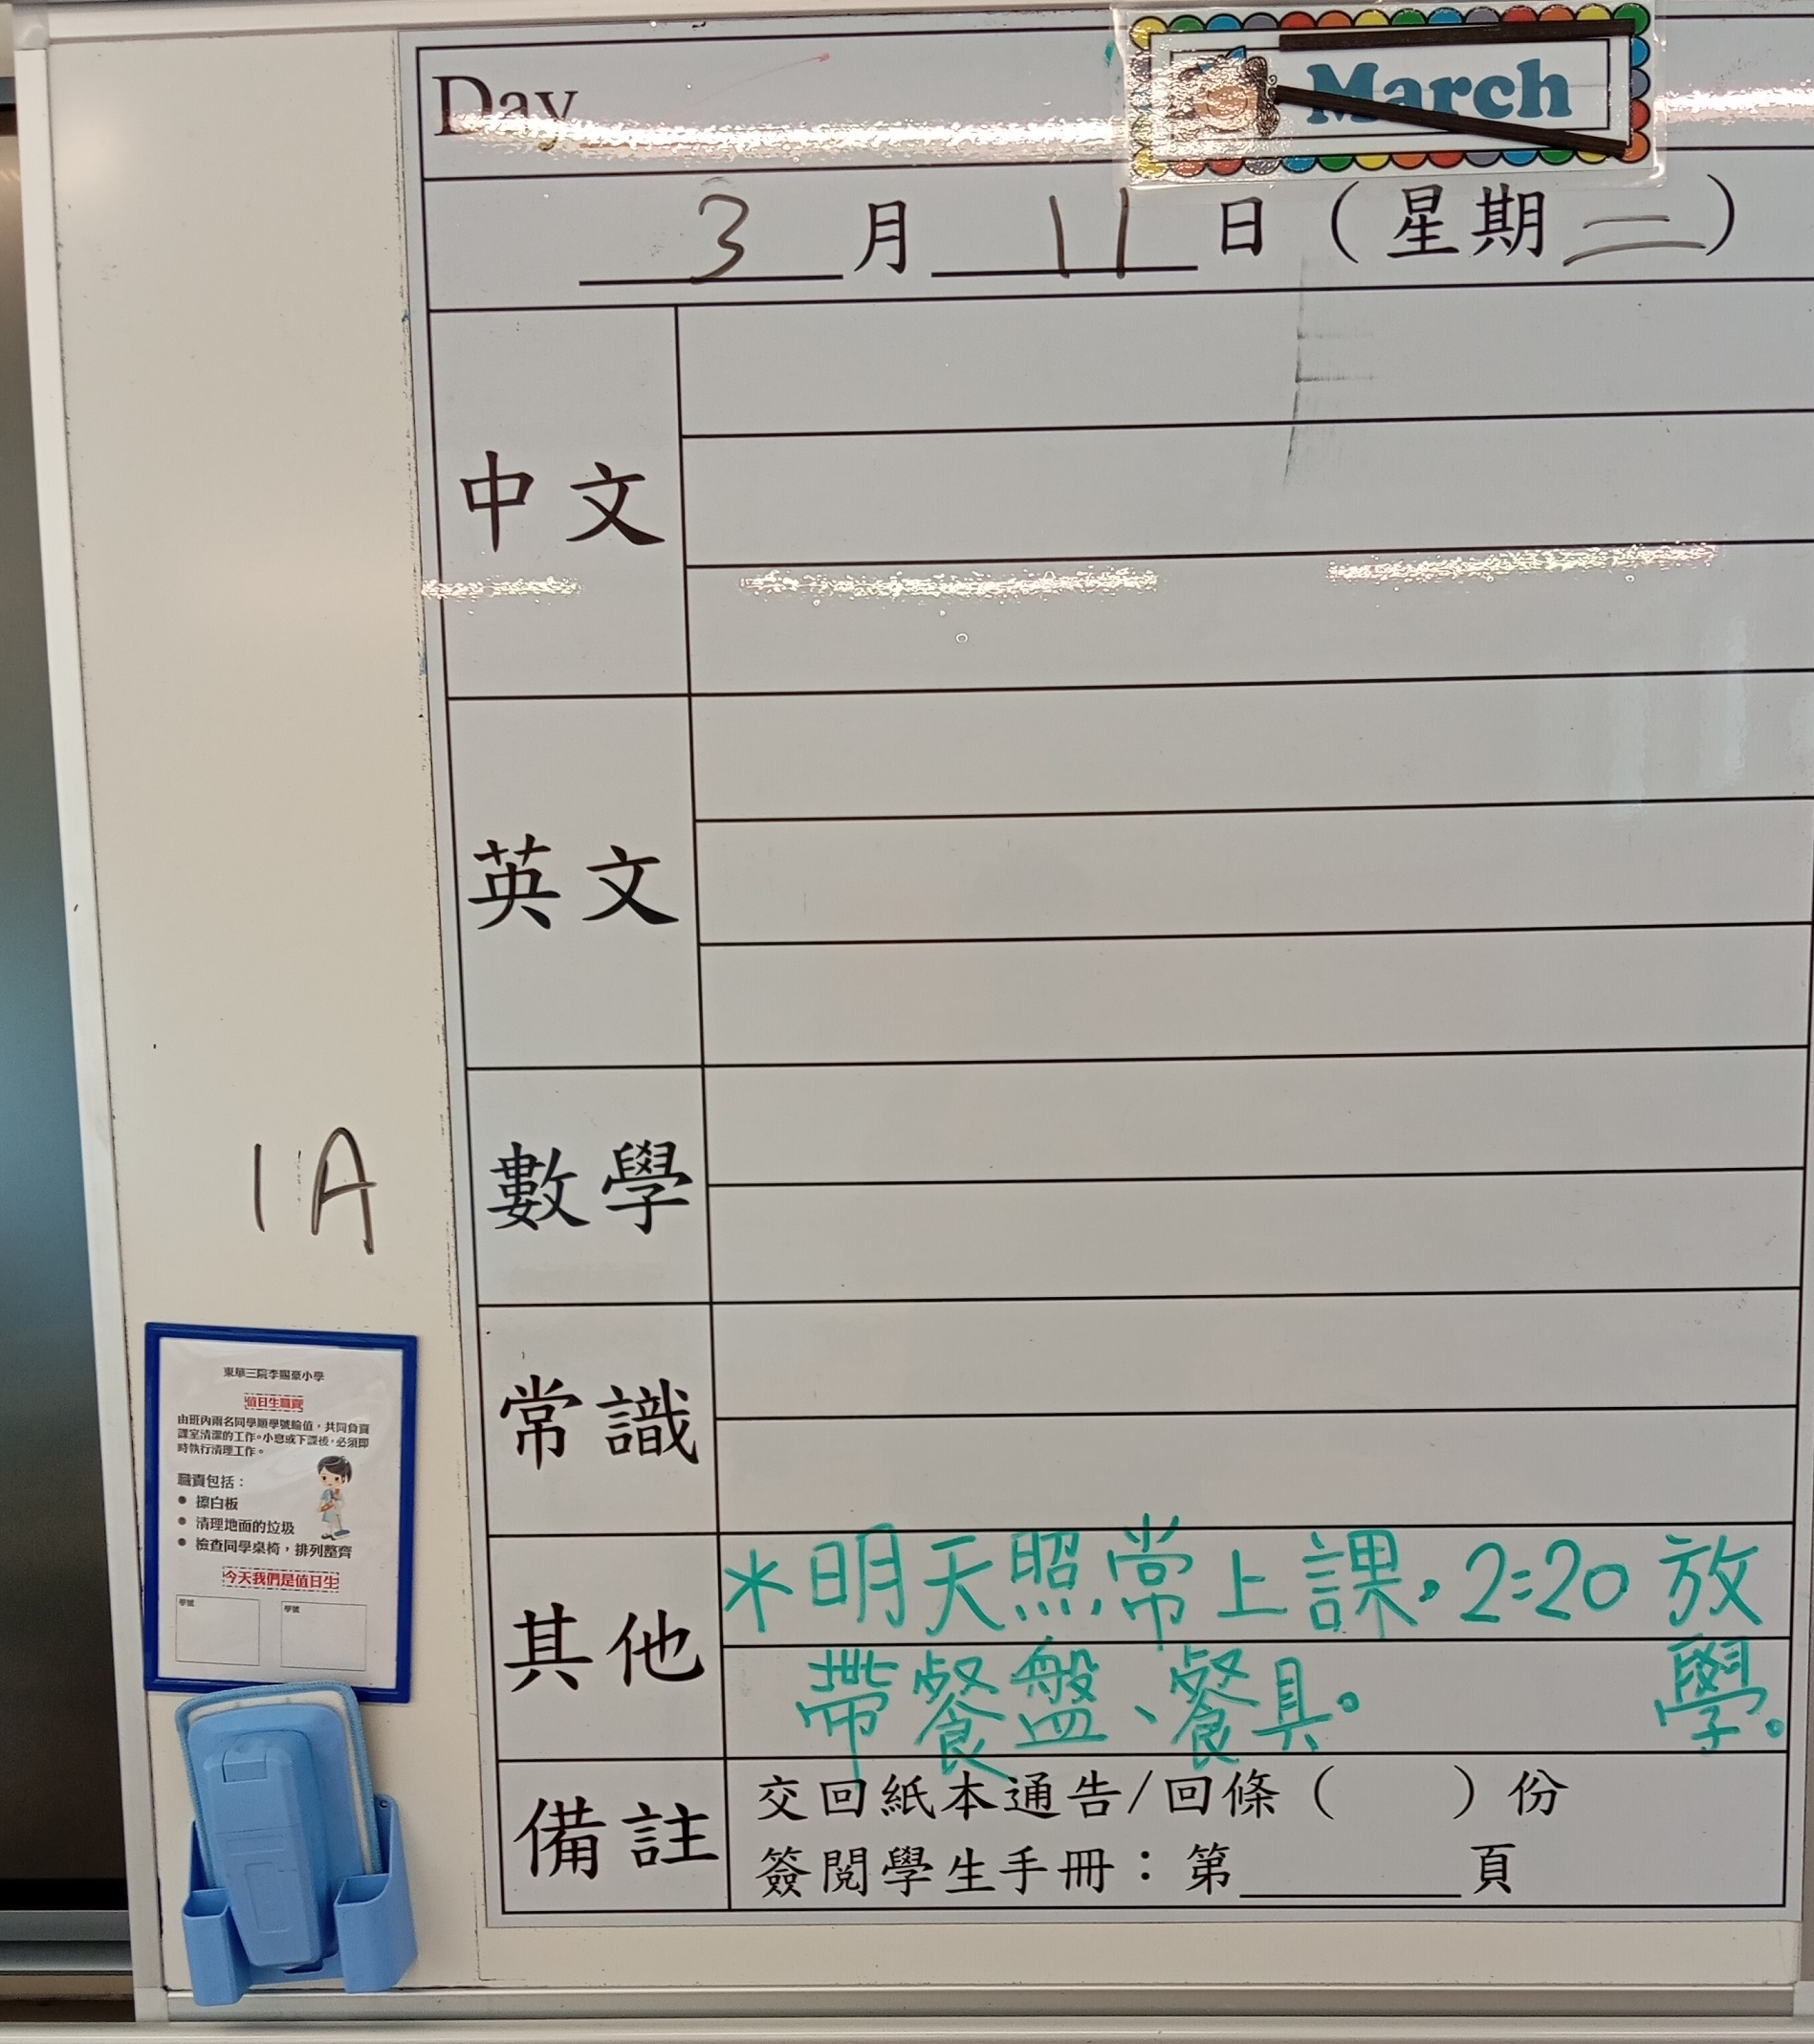 Day
March
3 月 11 日 ( 星期二 )
中文
英文
數學
常識
其他
＊明天照常上課，2:20 放學。
帶餐盤、餐具。
備註
交回紙本通告/回條 ( ) 份
簽閱學生手冊：第______頁
1A
東華三院李賜豪小學
值日生職責
由班內兩名同學順學號輪值，共同負責
課室清潔的工作。小息或下課後，必須即
時執行清理工作。
職責包括：
● 擦白板
● 清理地面的垃圾
● 檢查同學桌椅，排列整齊
今天我們是值日生
學號
學號